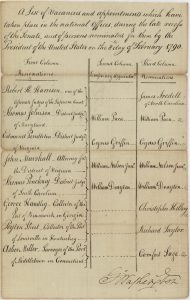 A List of Vacancies and appointments which have
taken place in the national Offices, during the late recess
of the Senate, and of persons nominated for them by the
President of the United States on the 8 day of February 1790
First Column
Second Column
Third Column
Nominations
Temporary Appointments
Nominations
Robert H. Harrison, one of the
James Iredell
of North Carolina
Thomas Johnson District Judge
of Maryland
William Paca
William Paca
Edmund Pendleton District Judge
of Virginia
Cyrus Griffin
Cyrus Griffin
John Marshall Attorney for
the District of Virginia
William Nelson Junr
William Nelson Junr
Thomas Pinckney District Judge
of South Carolina
William Drayton
William Drayton
George Handley, Collector of the
Port of Brunswick in Georgia
Christopher Hillary
Peyton Short Collector of the
Port of Louisville in Kentuckey
Richard Taylor
Asher Miller Surveyor of the Port
of Middletown in Connecticut
Comfort Sage
G. Washington